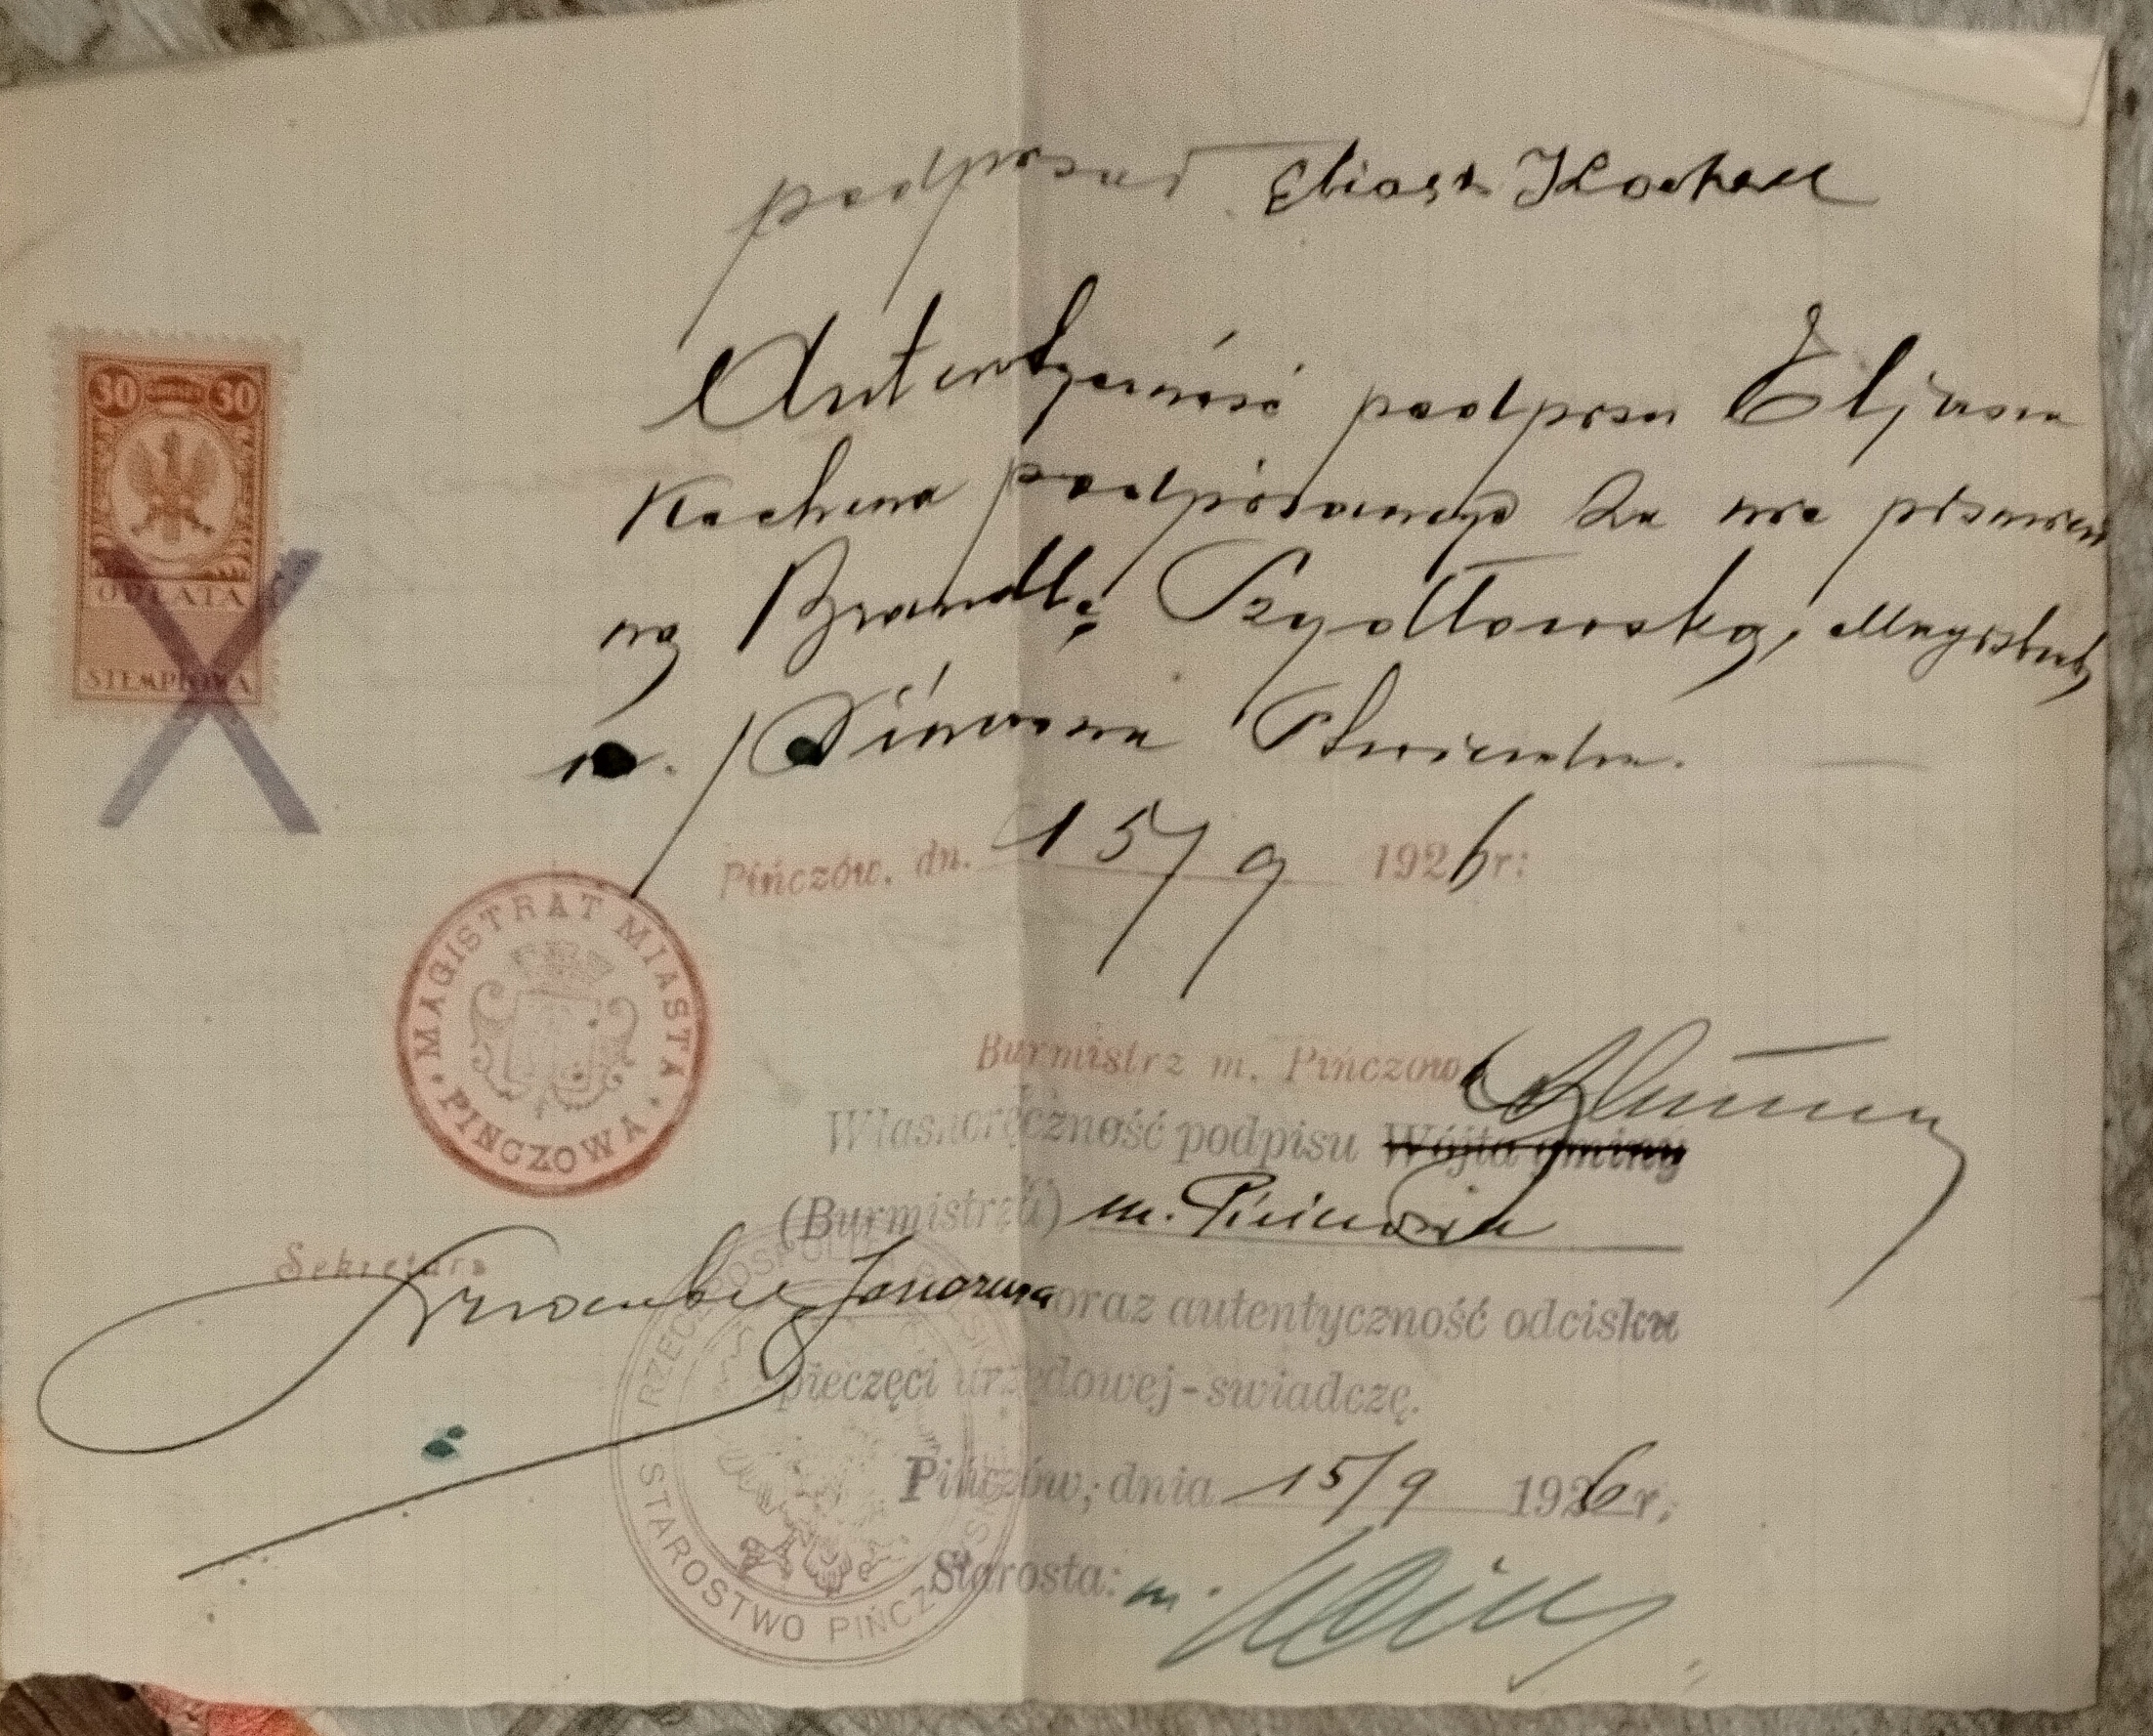 podpisał Eliasz Kochen
30 30
OPŁATA
STEMPLOWA
Autentyczność podpisu Eljasza
Kochena podpisanego za nie piśmien
ną Brandlę Szydłowską, Magistrat
m. Pińczowa stwierdza.
Pińczów, dn. 15/9 1926 r:
MAGISTRAT MIASTA PIŃCZOWA
Burmistrz m. Pińczowa
Własnoręczność podpisu Wójta gminy
(Burmistrza) m. Pińczowa
Sekretarz
oraz autentyczność odcisku
pieczęci urzędowej-swiadczę.
Pińczów, dnia 15/9 1926 r,
Starosta:
RZECZPOSPOLITA POLSKA
STAROSTWO PIŃCZOWSKIE